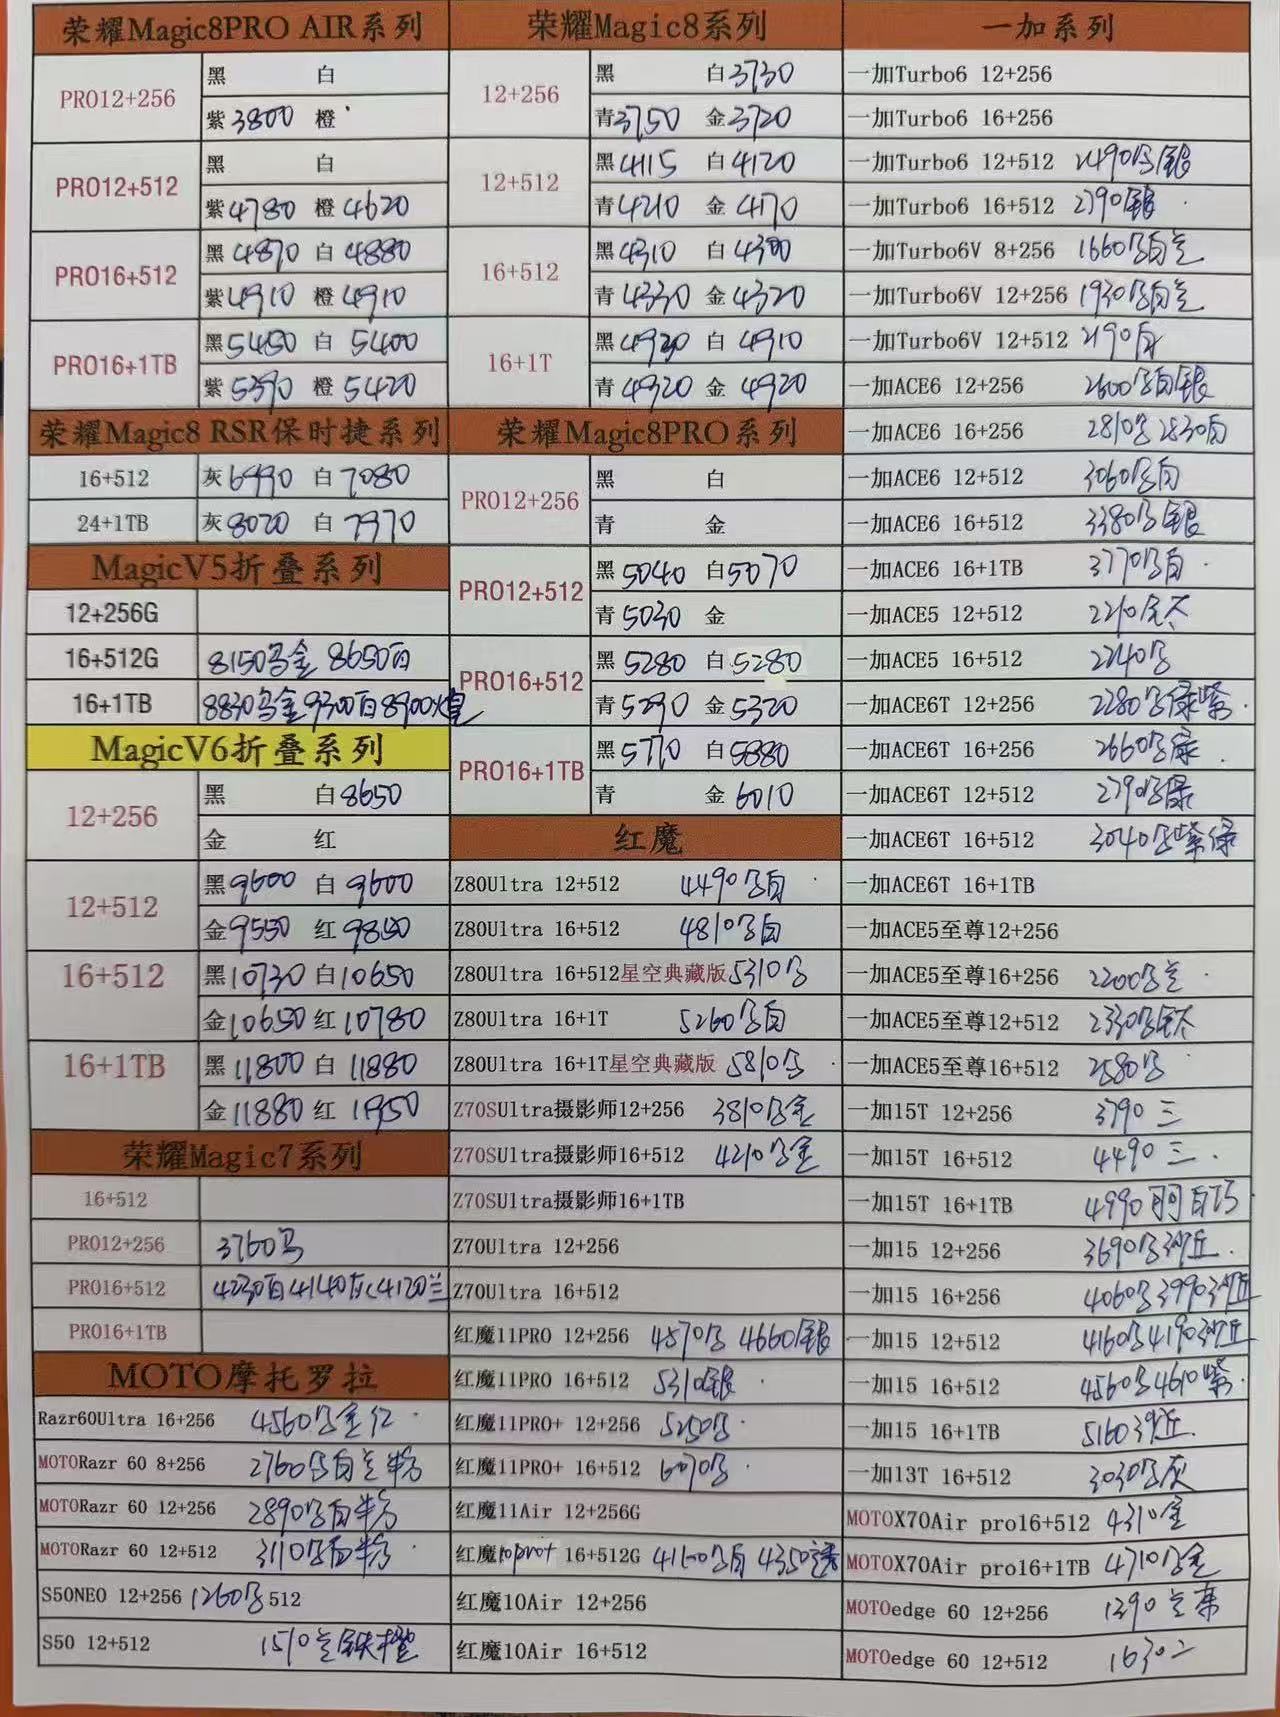 荣耀Magic8PRO AIR系列
PRO12+256
黑 白
紫3800 橙
PRO12+512
黑 白
紫4780 橙4620
PRO16+512
黑4870 白4880
紫4910 橙4910
PRO16+1TB
黑5450 白5400
紫5390 橙5420
荣耀Magic8 RSR保时捷系列
16+512 灰6990 白7080
24+1TB 灰8020 白7970
MagicV5折叠系列
12+256G
16+512G 8150乌金 8650白
16+1TB 8830乌金9300白8900
MagicV6折叠系列
12+256
黑 白8650
金 红
12+512
黑9600 白9600
金9550 红9850
16+512
黑10730 白10650
金10650 红10780
16+1TB
黑11800 白11880
金11880 红11950
荣耀Magic7系列
16+512
PRO12+256 3760
PRO16+512 4230白4140灰4120兰
PRO16+1TB
MOTO摩托罗拉
Razr60Ultra 16+256 4560
MOTORazr 60 8+256 2760
MOTORazr 60 12+256 2890
MOTORazr 60 12+512 3110
S50NEO 12+256 1260 512
S50 12+512 1510
荣耀Magic8系列
12+256
黑 白3730
青3750 金3720
12+512
黑4115 白4120
青4210 金4170
16+512
黑4310 白
青4330 金4320
16+1T
黑 白4910
青4920 金4920
荣耀Magic8PRO系列
PRO12+256
黑 白
青 金
PRO12+512
黑5040 白5070
青5030 金
PRO16+512
黑5280 白5280
青5290 金5320
PRO16+1TB
黑5770 白5880
青 金6010
红魔
Z80Ultra 12+512 4490
Z80Ultra 16+512 4810
Z80Ultra 16+512星空典藏版 5310
Z80Ultra 16+1T 5260
Z80Ultra 16+1T星空典藏版 5810
Z70SUltra摄影师12+256 3810
Z70SUltra摄影师16+512 4210
Z70SUltra摄影师16+1TB
Z70Ultra 12+256
Z70Ultra 16+512
红魔11PRO 12+256 4570 4660银
红魔11PRO 16+512 5310银
红魔11PRO+ 12+256 5250
红魔11PRO+ 16+512 6070
红魔11Air 12+256G
红魔10pro+ 16+512G 4350透
红魔10Air 12+256
红魔10Air 16+512
一加系列
一加Turbo6 12+256
一加Turbo6 16+256
一加Turbo6 12+512 2490
一加Turbo6 16+512 2790银
一加Turbo6V 8+256 1660
一加Turbo6V 12+256 1930
一加Turbo6V 12+512 2190白
一加ACE6 12+256 2600
一加ACE6 16+256 2810 2830白
一加ACE6 12+512 3060
一加ACE6 16+512 3380
一加ACE6 16+1TB 3770
一加ACE5 12+512 2210
一加ACE5 16+512 2240
一加ACE6T 12+256 2280
一加ACE6T 16+256 2660
一加ACE6T 12+512 2790
一加ACE6T 16+512 3040
一加ACE6T 16+1TB
一加ACE5至尊12+256
一加ACE5至尊16+256 2200
一加ACE5至尊12+512 2330
一加ACE5至尊16+512 2580
一加15T 12+256 3790 三
一加15T 16+512 4490 三
一加15T 16+1TB 4990 可可白巧
一加15 12+256 3690
一加15 16+256 4060 3990
一加15 12+512 4160 4190
一加15 16+512 4560 4610紫
一加15 16+1TB 5160沙丘
一加13T 16+512 3030
MOTOX70Air pro16+512 4310金
MOTOX70Air pro16+1TB 4710
MOTOedge 60 12+256 1390
MOTOedge 60 12+512 1630二